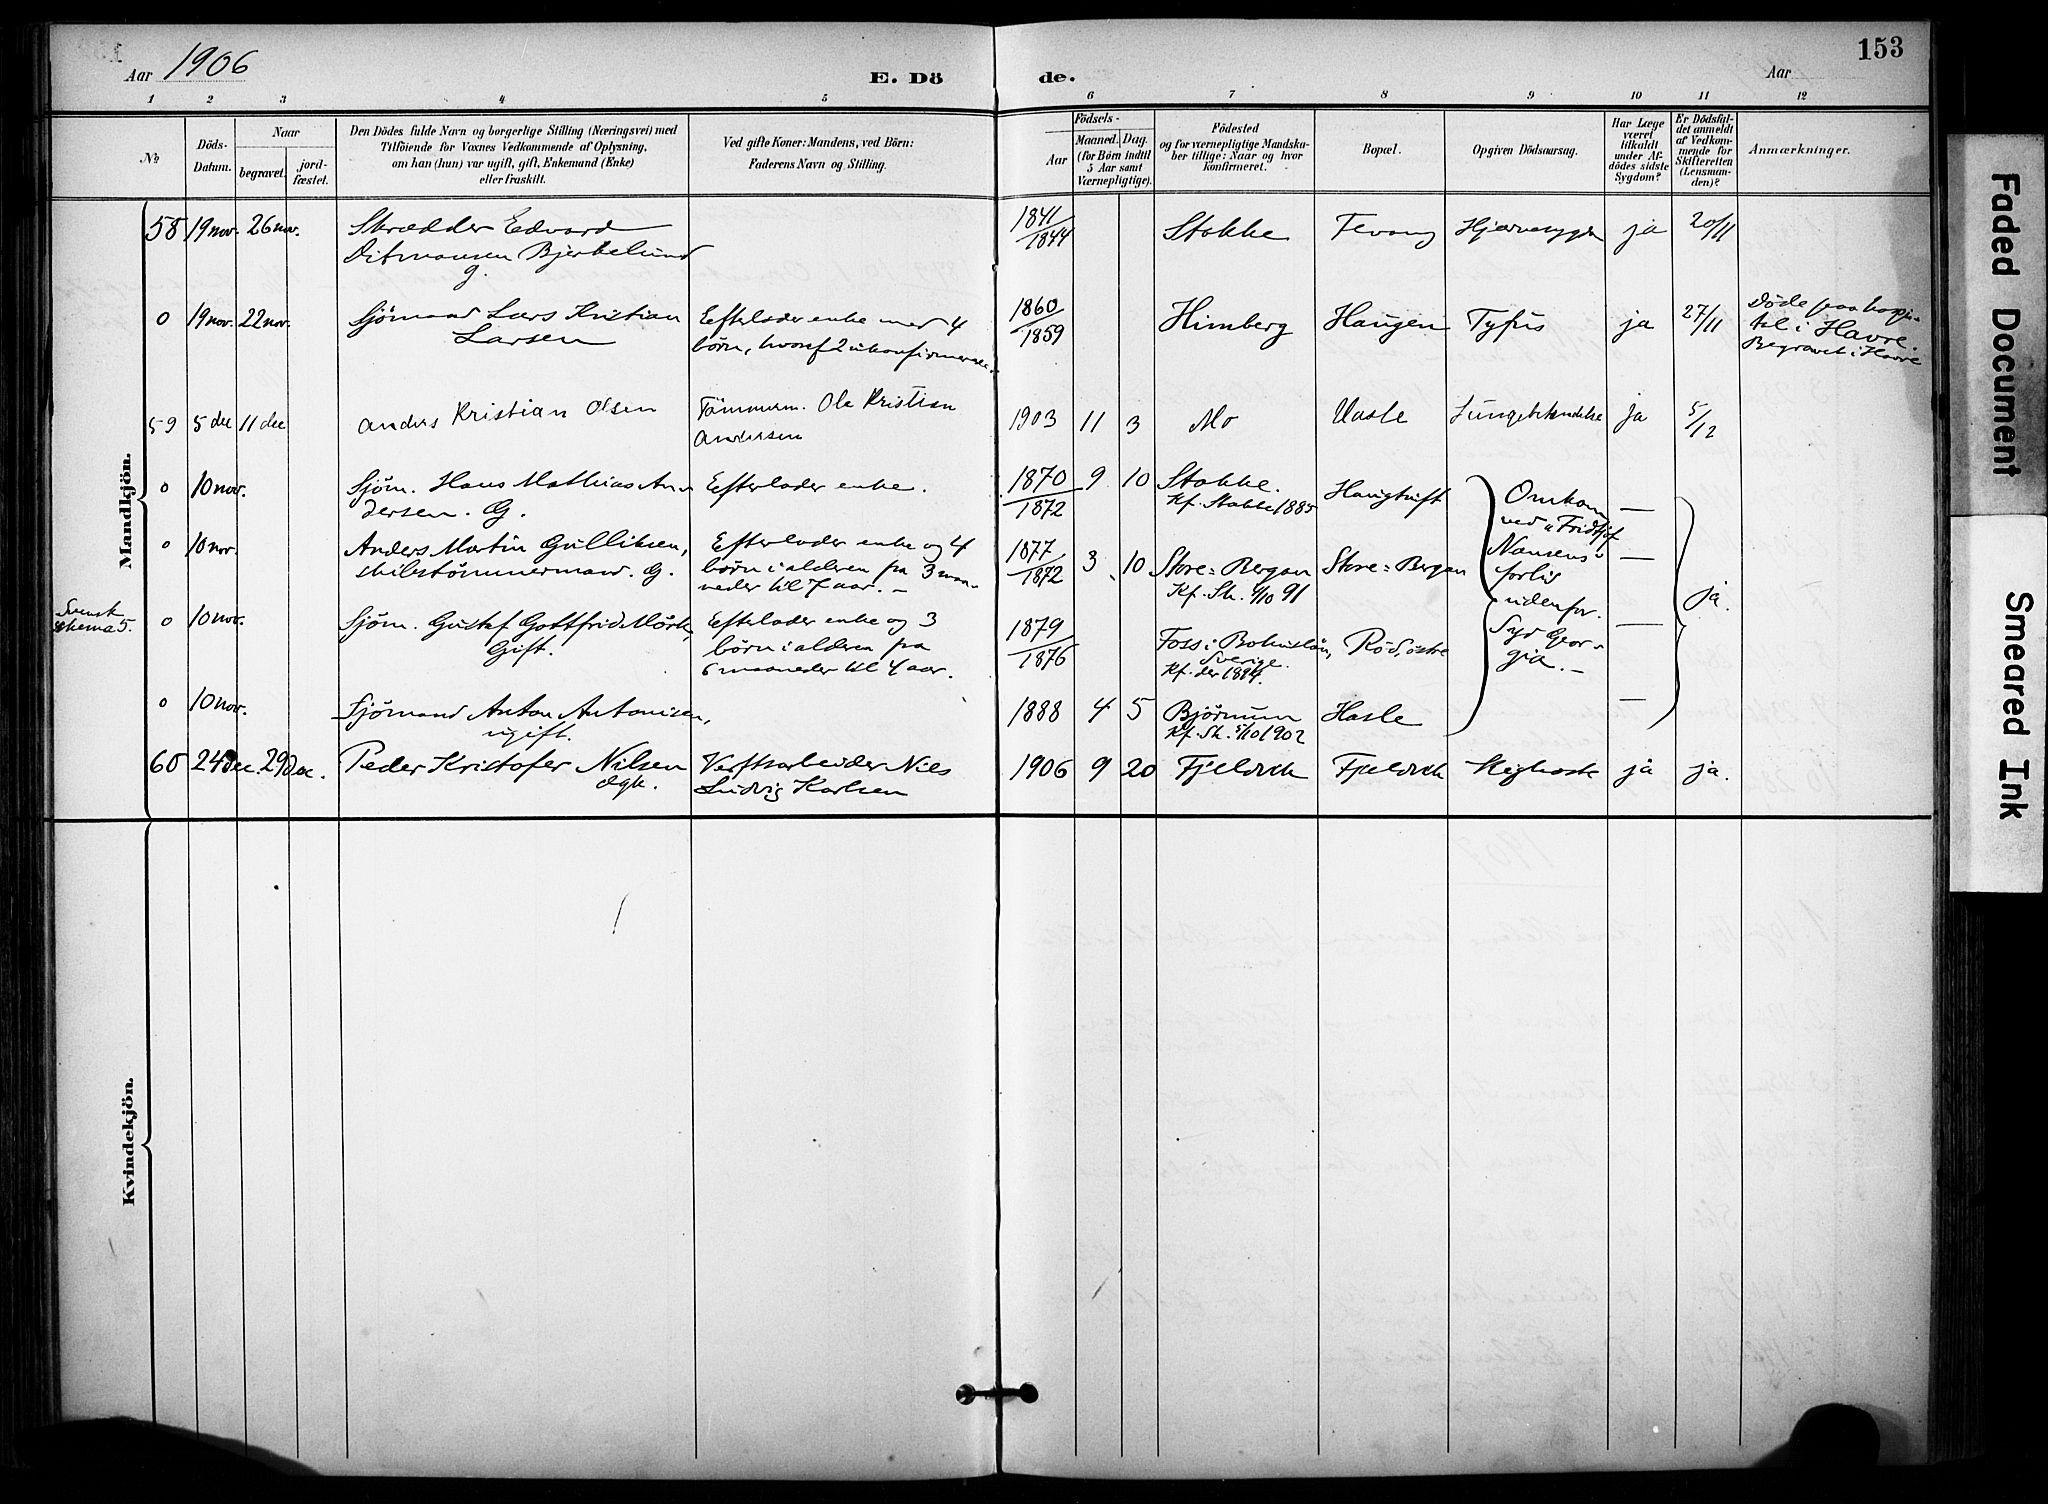 Aar 1906
E. Dö
de.
Aar
153
1 2 3 4 5 6 7 8 9 10 11 12
No
Döds-
Datum.
Naar
begravet.
jord-
fæstet.
Den Dödes fulde Navn og borgerlige Stilling (Næringsvei) med
Tilföiende for Voxnes Vedkommende af Oplysning,
om han (hun) var ugift, gift, Enkemand (Enke)
eller fraskilt.
Ved gifte Koner: Mandens, ved Börn:
Faderens Navn og Stilling.
Födsels-
Aar
Maaned.
Dag.
(for Börn indtil
5 Aar samt
Værnepligtige).
Födested
og for værnepligtige Mandska-
ber tillige: Naar og hvor
konfirmeret.
Bopæl.
Opgiven Dödsaarsag.
Har Læge
været
tilkaldt
under Af-
dödes sidste
Sygdom?
Er Dödsfal-
det anmeldt
af Vedkom-
mende for
Skifteretten
(Lensman-
den)?
Anmærkninger.
Mandkjön.
58 19 nov. 26 nov. Skrædder Edvard 1841 Stokke Fevang ja 20/11
Ditmansen Bjerkelund 1844
g.
0 19 nov. 22 nov. Sjömand Lars Kristian Efterlader enke med 4 1860 Himberg Haugen Tyfus ja 27/11 Døde paa hospi-
Larsen børn, hvoraf 2 ukonfirmerte. 1859 tal i Havre.
Begravet i Havre
59 5 dec 11 dec Anders Kristian Olsen Tömmerm. Ole Kristian 1903 11 3 Mo Lungebetændelse ja 5/12
Andersen
0 10 nov. Sjøm. Hans Mathias An- Efterlader enke. 1870 9 10 Stokke. Omkom —
dersen. G. 1872 Kf. Stokke 1885 ved "Fridtjof
0 10 nov. Anders Martin Gulliksen, Efterlader enke og 4 1877 3 10 Store=Bergan Store=Bergan Nansens" —
skibstømmermand. G. børn i alderen fra 3 maa- 1872 Kf. St. 4/10 91 forlis ja.
neder til 7 aar. —
Svensk
skema 5. 0 10 nov. Sjøm. Gustaf Gottfrid Mörk, Efterlader enke og 3 1879 Foss i Bohuslän, Röd, östre udenfor —
Gift. børn i alderen fra 1876 Sverige. Syd Geor-
6 maaneder til 4 aar. Kf. der 1894. gia. —
0 10 nov. Sjømand Anton Antonisen, 1888 4 5 Bjørnum Hasle —
ugift. Kf. St. 1902
60 24 dec. 29 dec. Peder Kristofer Nilsen Verftsarbeider Nils 1906 9 20 Fjeldvik Fjeldvik Kighoste ja ja.
dgk. Ludvig Karlsen
Kvindekjön.
Faded Document
Smeared Ink